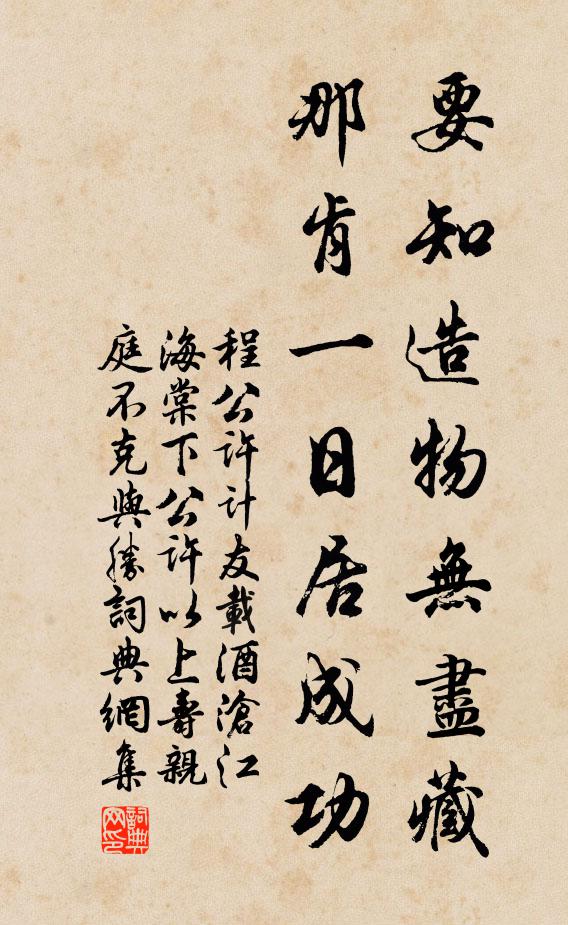 要知造物無盡藏
那肯一日居成功
程公許計友載酒滄江
海棠下公許以上壽親
庭不克與勝詞典網集
詞典网印